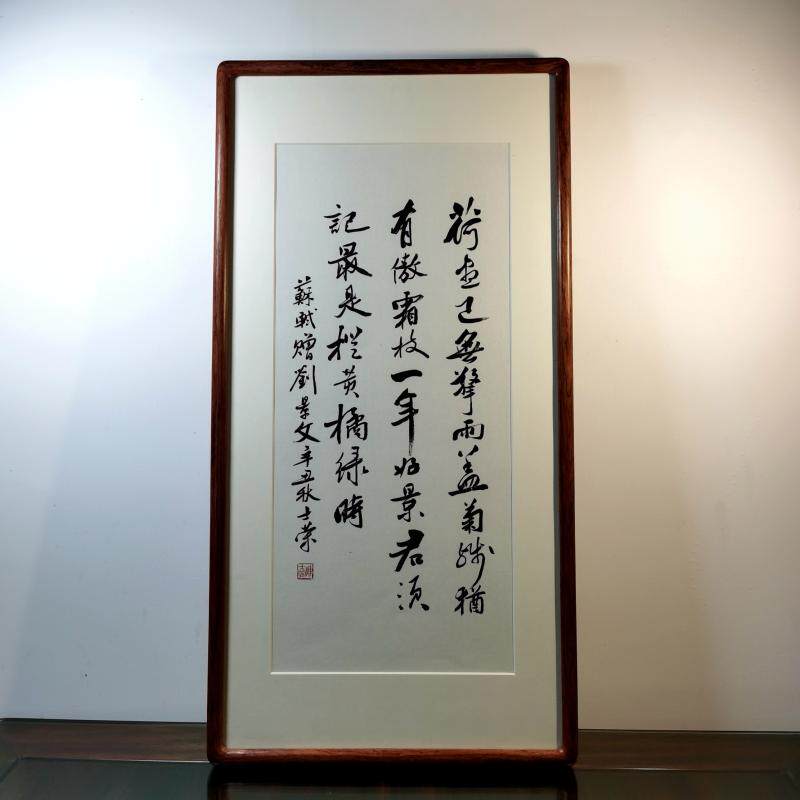 荷盡已無擎雨盖菊残猶
有傲霜枝一年好景君須
記最是橙黄橘緑時
蘇軾贈劉景文辛丑秋士榮